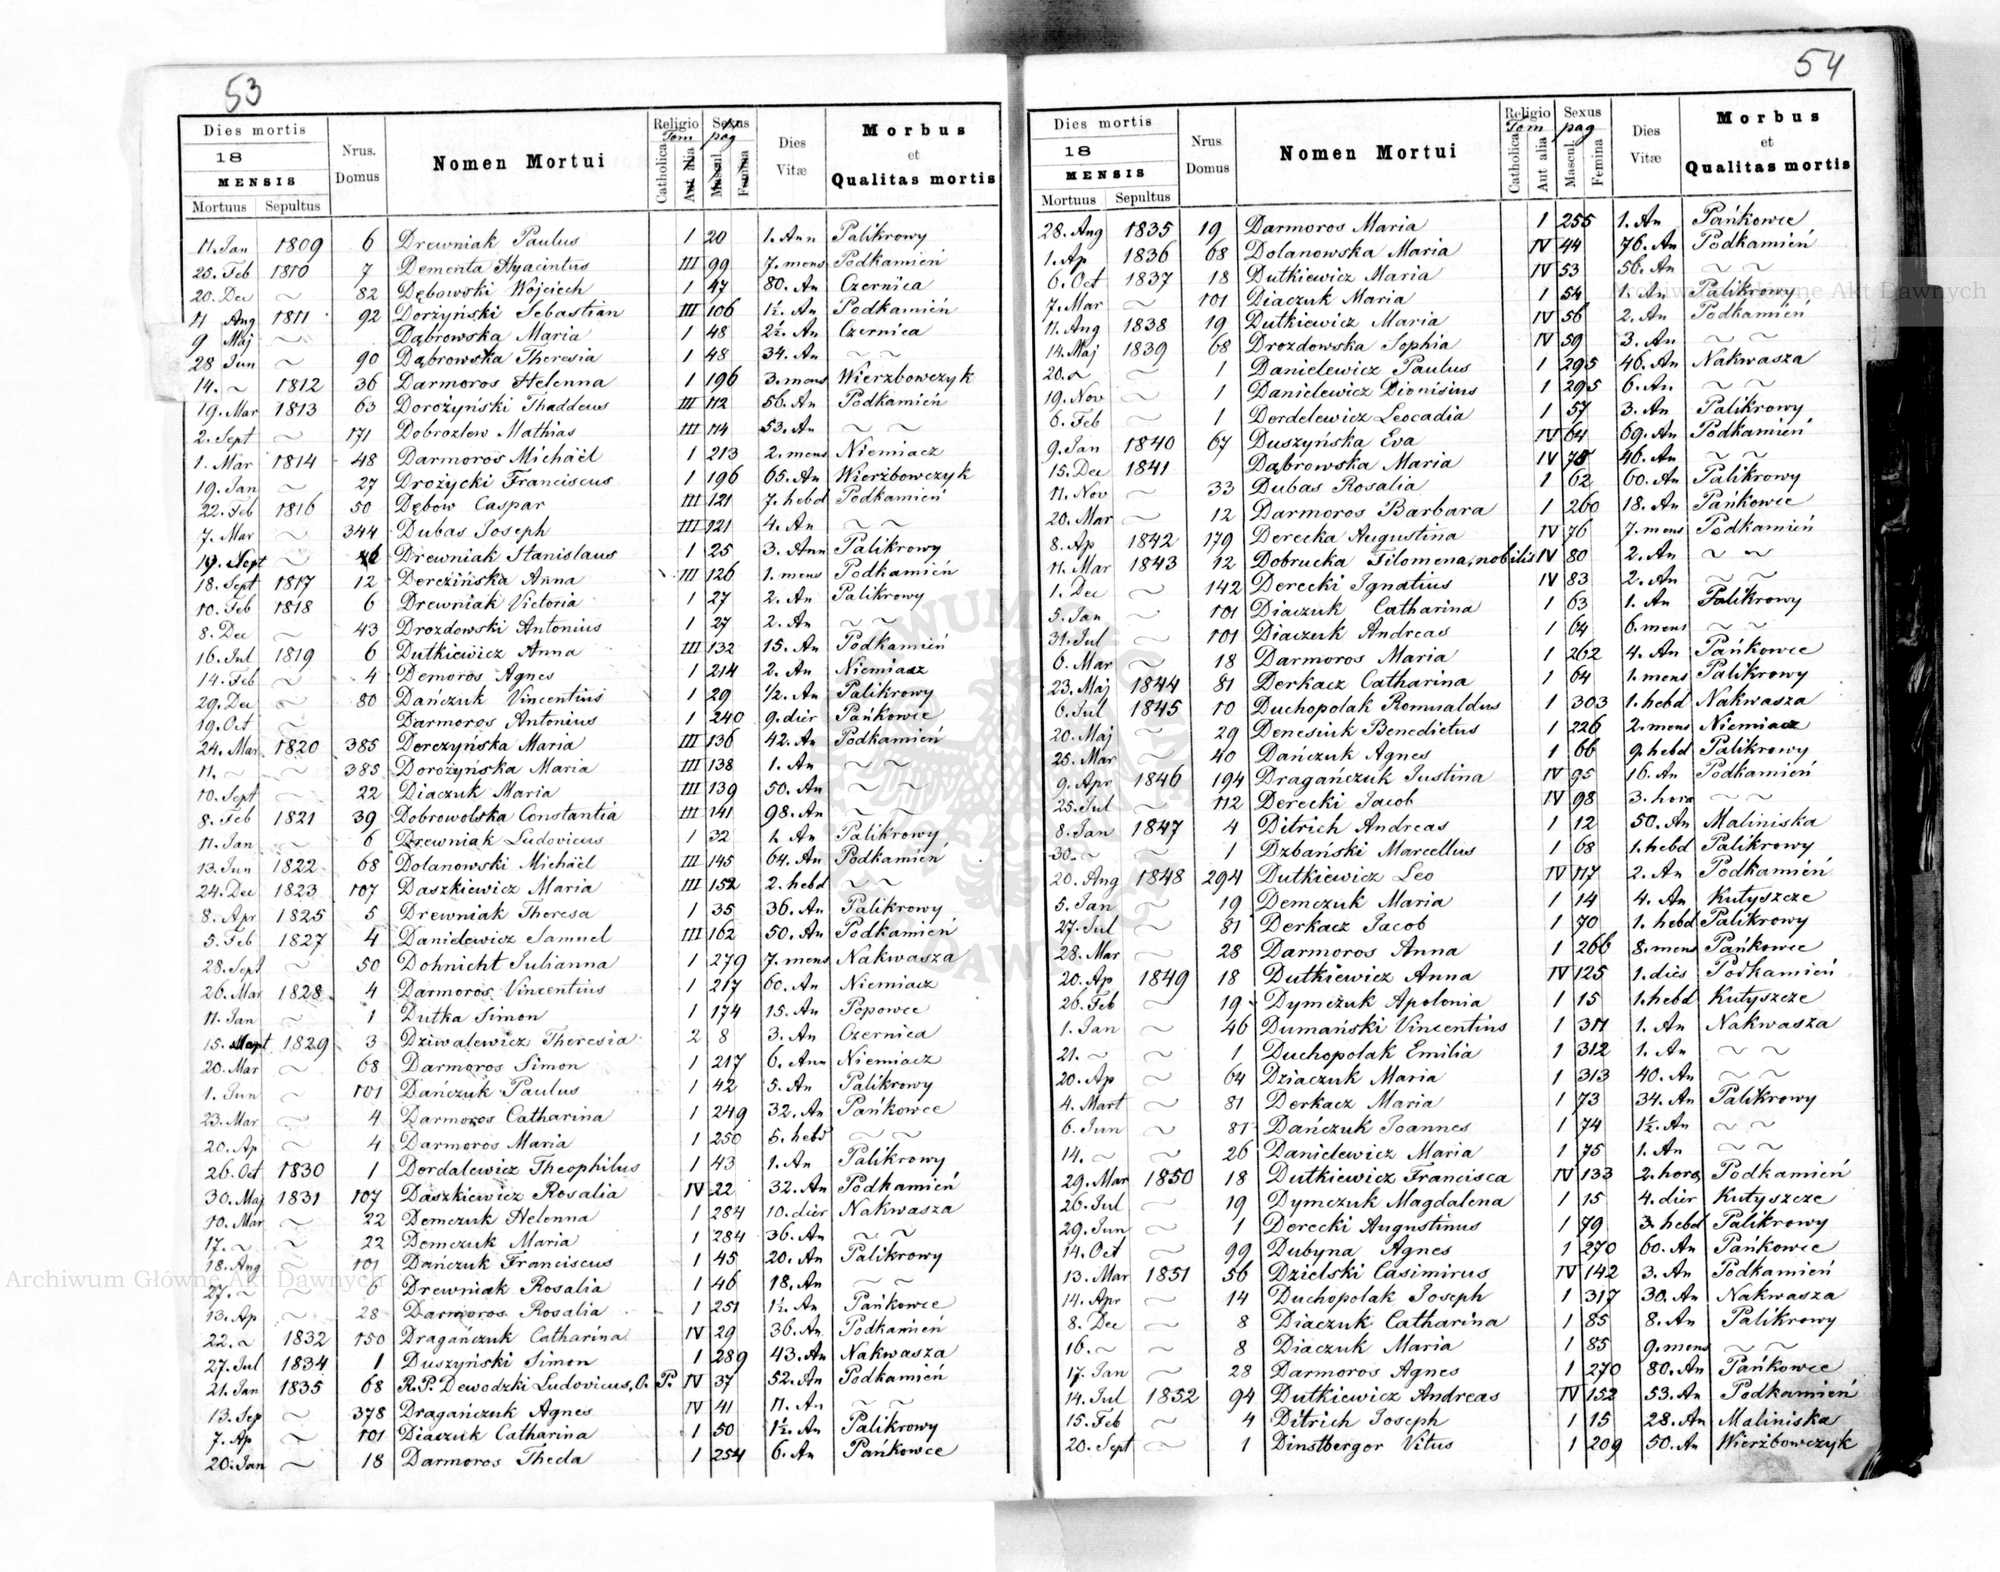 53
Dies mortis
18
MENSIS
Mortuus Sepultus
Nrus. Domus
Nomen Mortui
Religio Tom
Catholica Aut alia
Sexus pag
Mascul. Femina
Dies Vitæ
Morbus et Qualitas mortis
11. Jan 1809 6 Drewniak Paulus 1 20 1. Ann Palikrowy
25. Feb 1810 7 Dementa Hyacintus III 99 7. mens Podkamień
20. Dec ~ 82 Dębowski Wojciech 1 47 80. An Czernica
11 Aug 1811 92 Dorżyński Sebastian III 106 1½. An Podkamień
9 Maj ~ Dąbrowska Maria 1 48 2½. An Czernica
28 Jun ~ 90 Dąbrowska Theresia 1 48 34. An ~ ~
14. ~ 1812 36 Darmoros Helenna 1 196 3. mens Wierzbowczyk
19. Mar 1813 63 Dorożyński Thaddeus III 112 56. An Podkamień
2. Sept ~ 171 Dobrozlew Mathias III 114 53. An ~ ~
1. Mar 1814 48 Darmoros Michäel 1 213 2. mens Niemiacz
19. Jan ~ 27 Drożycki Franciscus 1 196 65. An Wierżbowczyk
22. Feb 1816 50 Dębow Caspar III 121 7. hebd Podkamień
7. Mar ~ 344 Dubas Joseph III 121 4. An ~ ~
19. Sept ~ Drewniak Stanislaus 1 25 3. Ann Palikrowy
18. Sept 1817 12 Dereżińska Anna III 126 1. mens Podkamień
10. Feb 1818 6 Drewniak Victoria 1 27 2. An Palikrowy
8. Dec ~ 43 Drozdowski Antonius 1 27 2. An ~ ~
16. Jul 1819 6 Dutkiewicz Anna III 132 15. An Podkamień
14. Feb ~ 4 Demoros Agnes 1 214 2. An Niemiacz
29. Dec ~ 80 Dańczuk Vincentius 1 29 1/2. An Palikrowy
19. Oct ~ Darmoros Antonius 1 240 9. dier Pańkowce
24. Mar 1820 385 Dorczyńska Maria III 136 42. An Podkamień
11. ~ ~ 385 Dorożyńska Maria III 138 1. An ~ ~
10. Sept ~ 22 Diaczuk Maria III 139 50. An ~ ~
8. Feb 1821 39 Dobrowolska Constantia III 141 98. An ~ ~
11. Jan ~ 6 Drewniak Ludovicus 1 32 1. An Palikrowy
13. Jun 1822 68 Dolanowski Michäel III 145 64. An Podkamień
24. Dec 1823 107 Daszkiewicz Maria III 152 2. hebd ~ ~
8. Apr 1825 5 Drewniak Theresa 1 35 36. An Palikrowy
5. Feb 1827 4 Danielewicz Samuel III 162 50. An Podkamień
28. Sept ~ 50 Dohnicht Julianna 1 279 7. mens Nakwasza
26. Mar 1828 4 Darmoros Vincentius 1 217 60. An Niemiacz
11. Jan ~ 1 Dutka Simon 1 174 15. An Popowce
15. Sept 1829 3 Dziwalewicz Theresia 2 8 3. An Czernica
20. Mar ~ 68 Darmoros Simon 1 217 6. Ann Niemiacz
1. Jun ~ 101 Dańczuk Paulus 1 42 5. An Palikrowy
23. Mar ~ 4 Darmoros Catharina 1 249 32. An Pańkowce
20. Ap ~ 4 Darmoros Maria 1 250 5. hebd ~ ~
26. Oct 1830 1 Dordalewicz Theophilus 1 43 1. An Palikrowy
30. Maj 1831 107 Daszkiewicz Rosalia IV 22 32. An Podkamień
10. Mar ~ 22 Demczuk Helenna 1 284 10. dier Nakwasza
17. ~ ~ 22 Demczuk Maria 1 284 36. An ~ ~
18. Aug ~ 101 Dańczuk Franciscus 1 45 20. An Palikrowy
27. ~ ~ 6 Drewniak Rosalia 1 46 18. An ~ ~
13. Ap ~ 28 Darmoros Rosalia 1 251 1½. An Pańkowce
22. ~ 1832 150 Dragańczuk Catharina IV 29 36. An Podkamień
27. Jul 1834 1 Duszyński Simon 1 289 43. An Nakwasza
21. Jan 1835 68 R.P. Dewodzki Ludovicus, O. P. IV 37 52. An Podkamień
13. Sep ~ 378 Dragańczuk Agnes IV 41 11. An ~ ~
7. Ap ~ 101 Diaczuk Catharina 1 50 1½. An Palikrowy
20. Jan ~ 18 Darmoros Theda 1 254 6. An Pańkowce
54
Dies mortis
18
MENSIS
Mortuus Sepultus
Nrus Domus
Nomen Mortui
Religio Tom
Catholica Aut alia
Sexus pag
Mascul. Femina
Dies Vitæ
Morbus et Qualitas mortis
28. Aug 1835 19 Darmoros Maria 1 255 1. An Pańkowce
1. Ap 1836 68 Dolanowska Maria IV 44 76. An Podkamień
6. Oct 1837 18 Dutkiewicz Maria IV 53 56. An ~ ~
7. Mar ~ 101 Diaczuk Maria 1 54 1. An Palikrowy
11. Aug 1838 19 Dutkiewicz Maria IV 56 2. An Podkamień
14. Maj 1839 68 Drozdowska Sophia IV 59 3. An ~ ~
20. ~ ~ 1 Danielewicz Paulus 1 295 46. An Nakwasza
19. Nov ~ 1 Danielewicz Dionisius 1 295 6. An. ~ ~
6. Feb ~ 1 Derdelewicz Leocadia 1 57 3. An Palikrowy
9. Jan 1840 67 Duszyńska Eva IV 64 69. An Podkamień
15. Dec 1841 Dąbrowska Maria IV 75 46. An ~ ~
11. Nov ~ 33 Dubas Rosalia 1 62 60. An Palikrowy
20. Mar ~ 12 Darmoros Barbara 1 260 18. An Pańkowce
8. Ap 1842 179 Derecka Augustina IV 76 7. mens Podkamień
11. Mar 1843 12 Dobrucka Filomena, nobilis IV 80 2. An ~ ~
1. Dec ~ 142 Derecki Ignatius IV 83 2. An ~ ~
5. Jan ~ 101 Diaczuk Catharina 1 63 1. An Palikrowy
31. Jul ~ 101 Diaczuk Andreas 1 64 6. mens ~ ~
6. Mar ~ 18 Darmoros Maria 1 262 4. An Pańkowce
23. Maj 1844 81 Derkacz Catharina 1 64 1. mens Palikrowy
6. Jul 1845 10 Duchopolak Romualdus 1 303 1. hebd Nakwasza
20. Maj ~ 29 Denesiuk Benedictus 1 226 2. mens Niemiacz
25. Mar ~ 40 Dańczuk Agnes 1 66 9. hebd Palikrowy
9. Apr 1846 194 Dragańczuk Justina IV 95 16. An Podkamień
25. Jul ~ 112 Derecki Jacob IV 98 3. hora ~ ~
8. Jan 1847 4 Ditrich Andreas 1 12 50. An Maliniska
30. ~ ~ 1 Dzbański Marcellus 1 68 1. hebd Palikrowy
20. Aug 1848 294 Dutkiewicz Leo IV 117 2. An Podkamień
5. Jan ~ 19 Demczuk Maria 1 14 4. An Kutyszcze
27. Jul ~ 81 Derkacz Jacob 1 70 1. hebd Palikrowy
28. Mar ~ 28 Darmoros Anna 1 266 8. mens Pańkowce
20. Ap 1849 18 Dutkiewicz Anna IV 125 1. dies Podkamień
26. Feb ~ 19 Dymczuk Apolonia 1 15 1. hebd Kutyszcze
1. Jan ~ 46 Dumański Vincentius 1 311 1. An Nakwasza
21. ~ ~ 1 Duchopolak Emilia 1 312 1. An ~ ~
20. Ap ~ 64 Dziaczuk Maria 1 313 40. An ~ ~
4. Mart ~ 81 Derkacz Maria 1 73 34. An Palikrowy
6. Jun ~ 81 Dańczuk Joannes 1 74 1½. An ~ ~
14. ~ ~ 26 Danielewicz Maria 1 75 1. An ~ ~
29. Mar 1850 18 Dutkiewicz Francisca IV 133 2. hora Podkamień
26. Jul ~ 19 Dymczuk Magdalena 1 15 4. dier Kutyszcze
29. Jun ~ 1 Derecki Augustinus 1 79 3. hebd Palikrowy
14. Oct ~ 99 Dubyna Agnes 1 270 60. An Pańkowce
13. Mar 1851 56 Dzielski Casimirus IV 142 3. An Podkamień
14. Apr ~ 14 Duchopolak Joseph 1 317 30. An Nakwasza
8. Dec ~ 8 Diaczuk Catharina 1 85 8. An Palikrowy
16. ~ ~ 8 Diaczuk Maria 1 85 9. mens ~ ~
17. Jan ~ 28 Darmoros Agnes 1 270 80. An Pańkowce
14. Jul 1852 94 Dutkiewicz Andreas IV 152 53. An Podkamień
15. Feb ~ 4 Ditrich Joseph 1 15 28. An Maliniska
20. Sept ~ 1 Dinstberger Vitus 1 209 50. An Wierżbowczyk
Archiwum Główne Akt Dawnych
Archiwum Główne Akt Dawnych